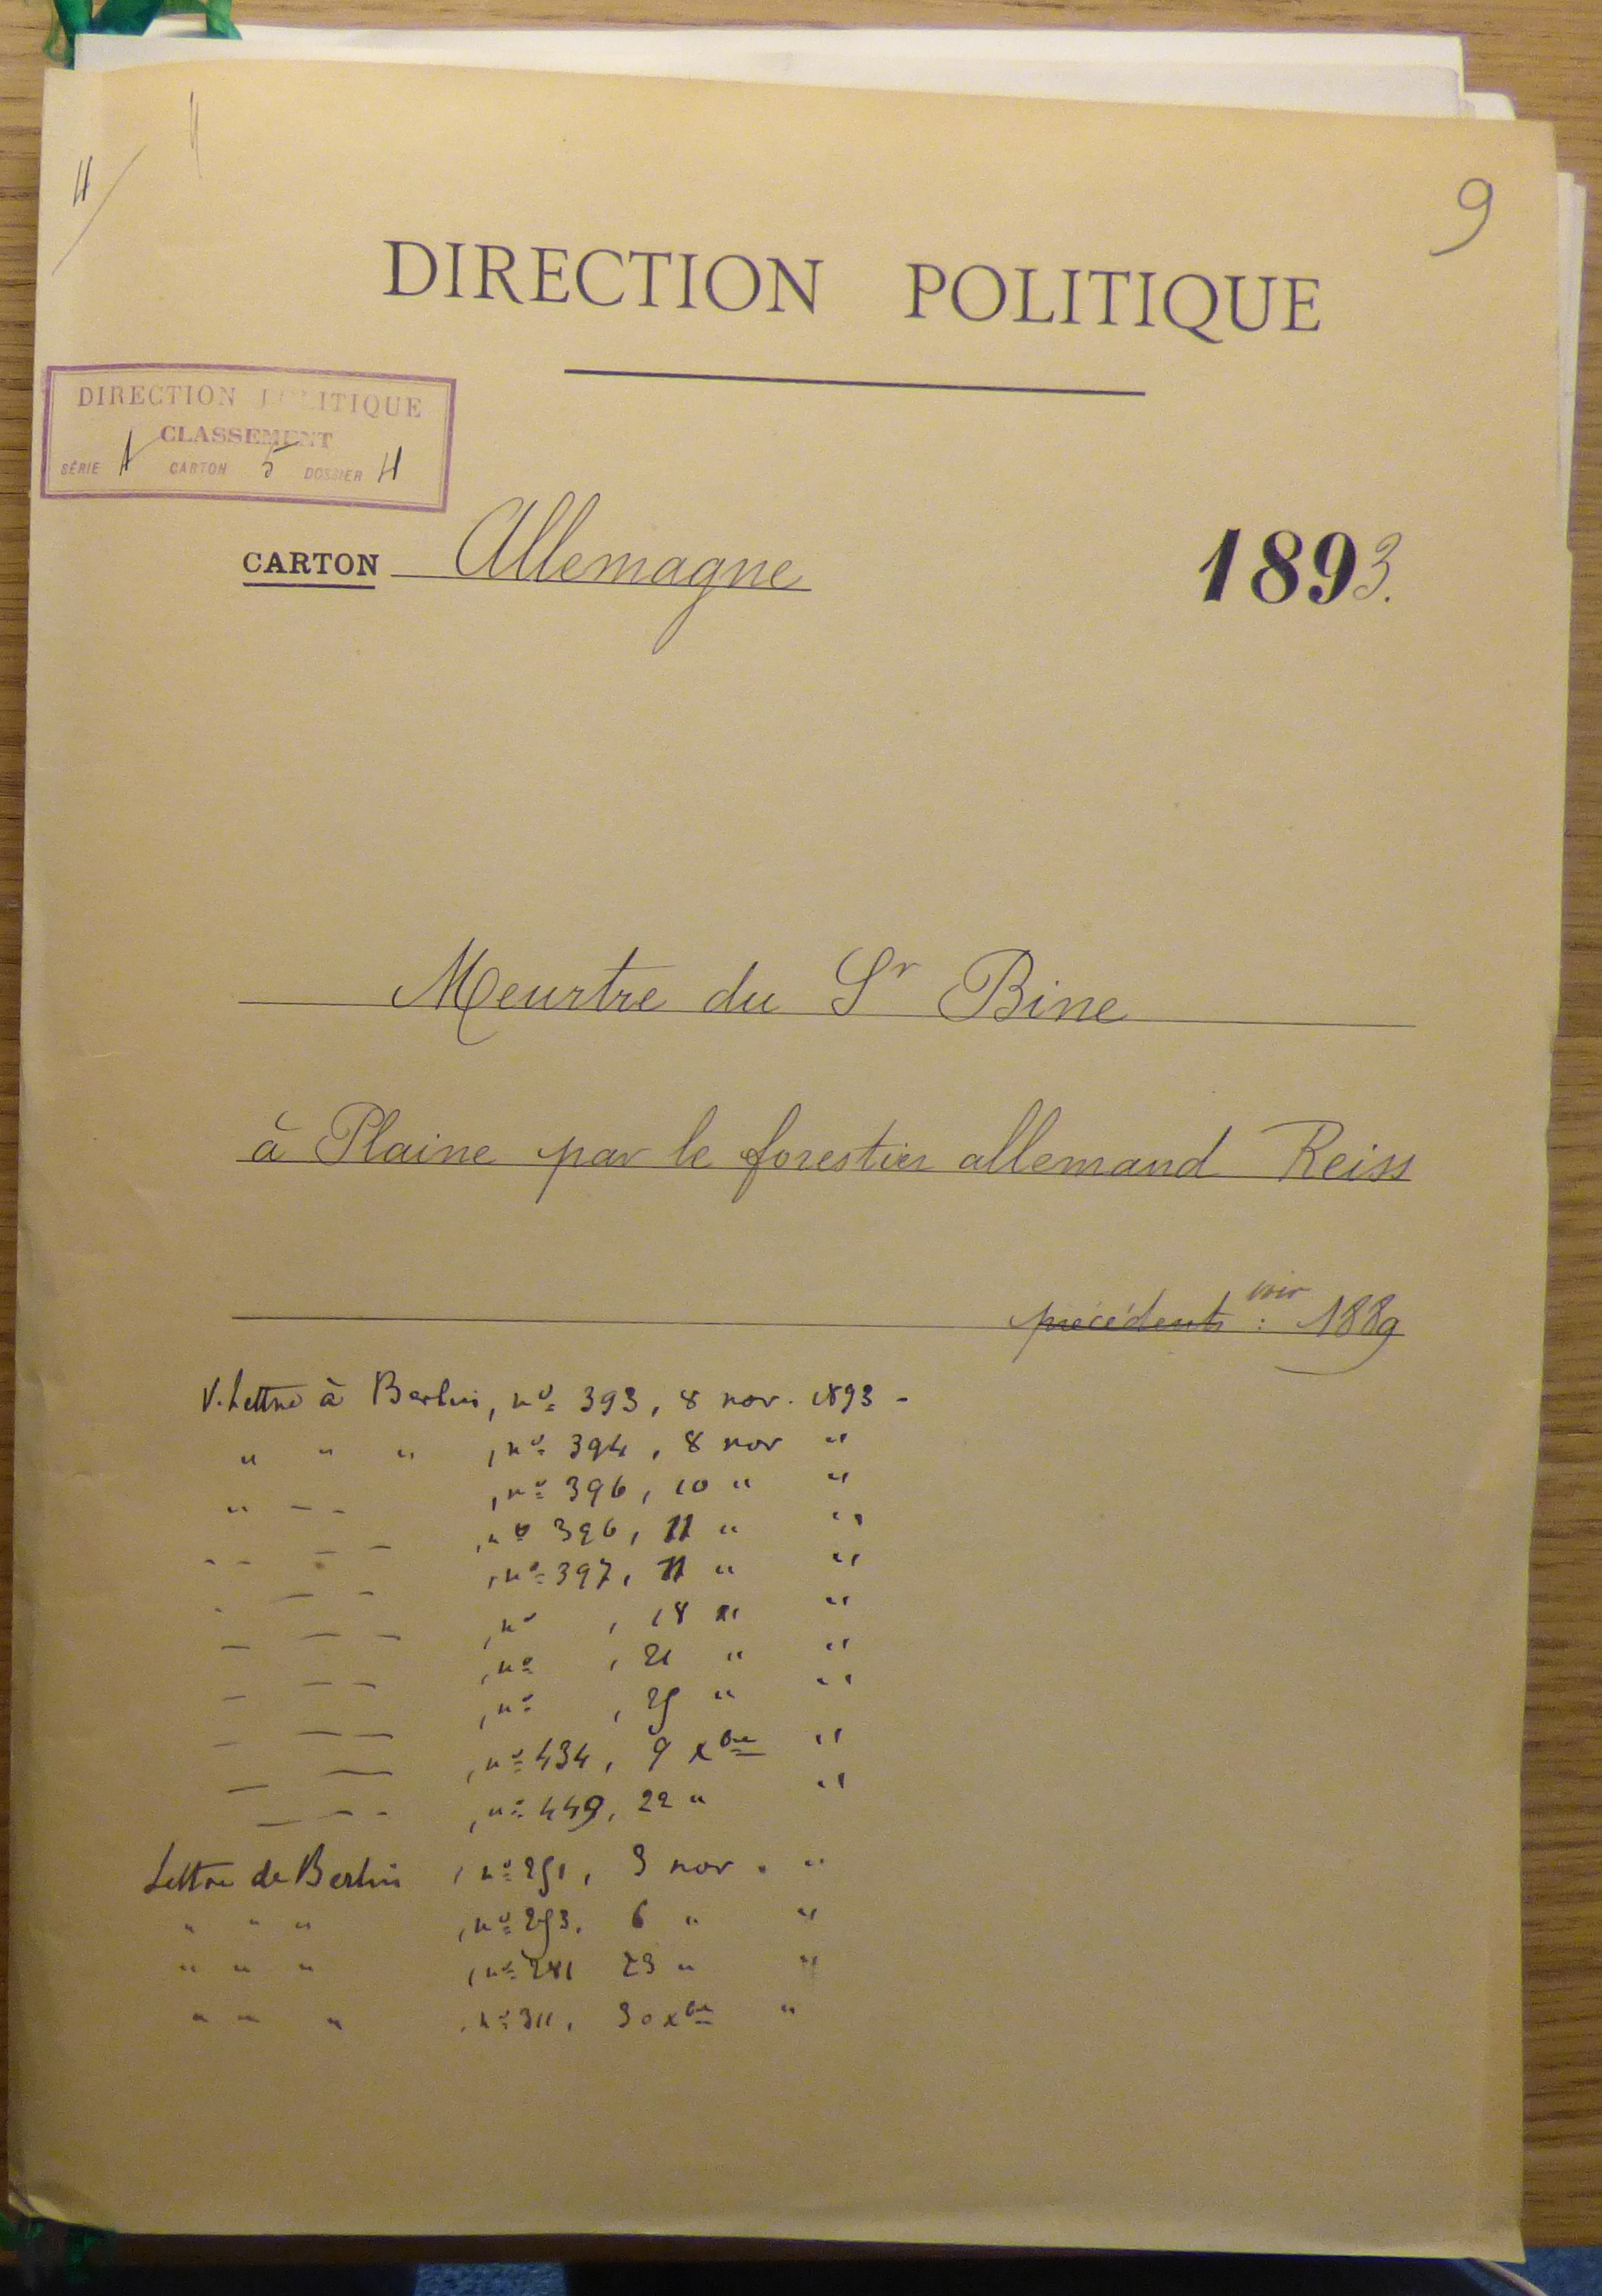 9
DIRECTION POLITIQUE
DIRECTION POLITIQUE
CLASSEMENT
SÉRIE A CARTON 5 DOSSIER H
CARTON Allemagne 1893.
Meurtre du Sr Bine
à Plaine par le forestier allemand Reiss
voir
précédents : 1889
V. Lettre à Berlin, nº 393, 8 nov. 1893 -
" " " , nº 394, 8 nov "
" - - , nº 396, 10 " "
- - - - , nº 396, 11 " "
- - - , nº 397, 11 " "
- - - - , nº , 18 " "
- - - , nº , 21 " "
- - - , nº , 25 " "
- - , nº 434, 9 xbre "
- - - , nº 449, 22 " "
Lettre de Berlin, nº 251, 3 nov. "
" " " , nº 253. 6 " "
" " " , nº 281 23 " "
" " " , nº 311, 30 xbre "